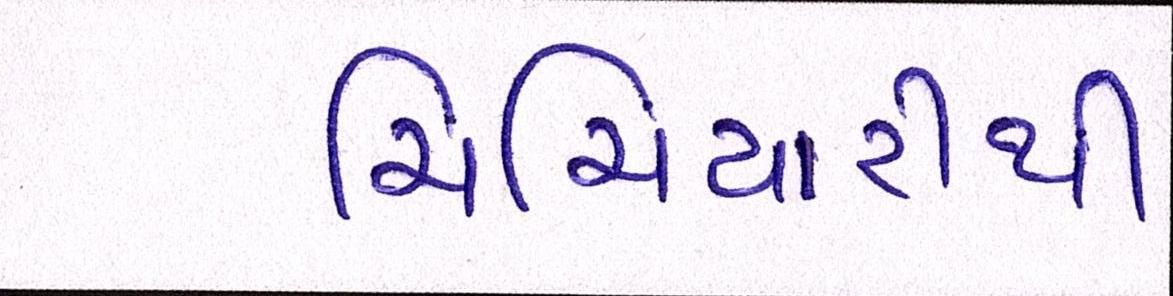 ચિચિયારીથી